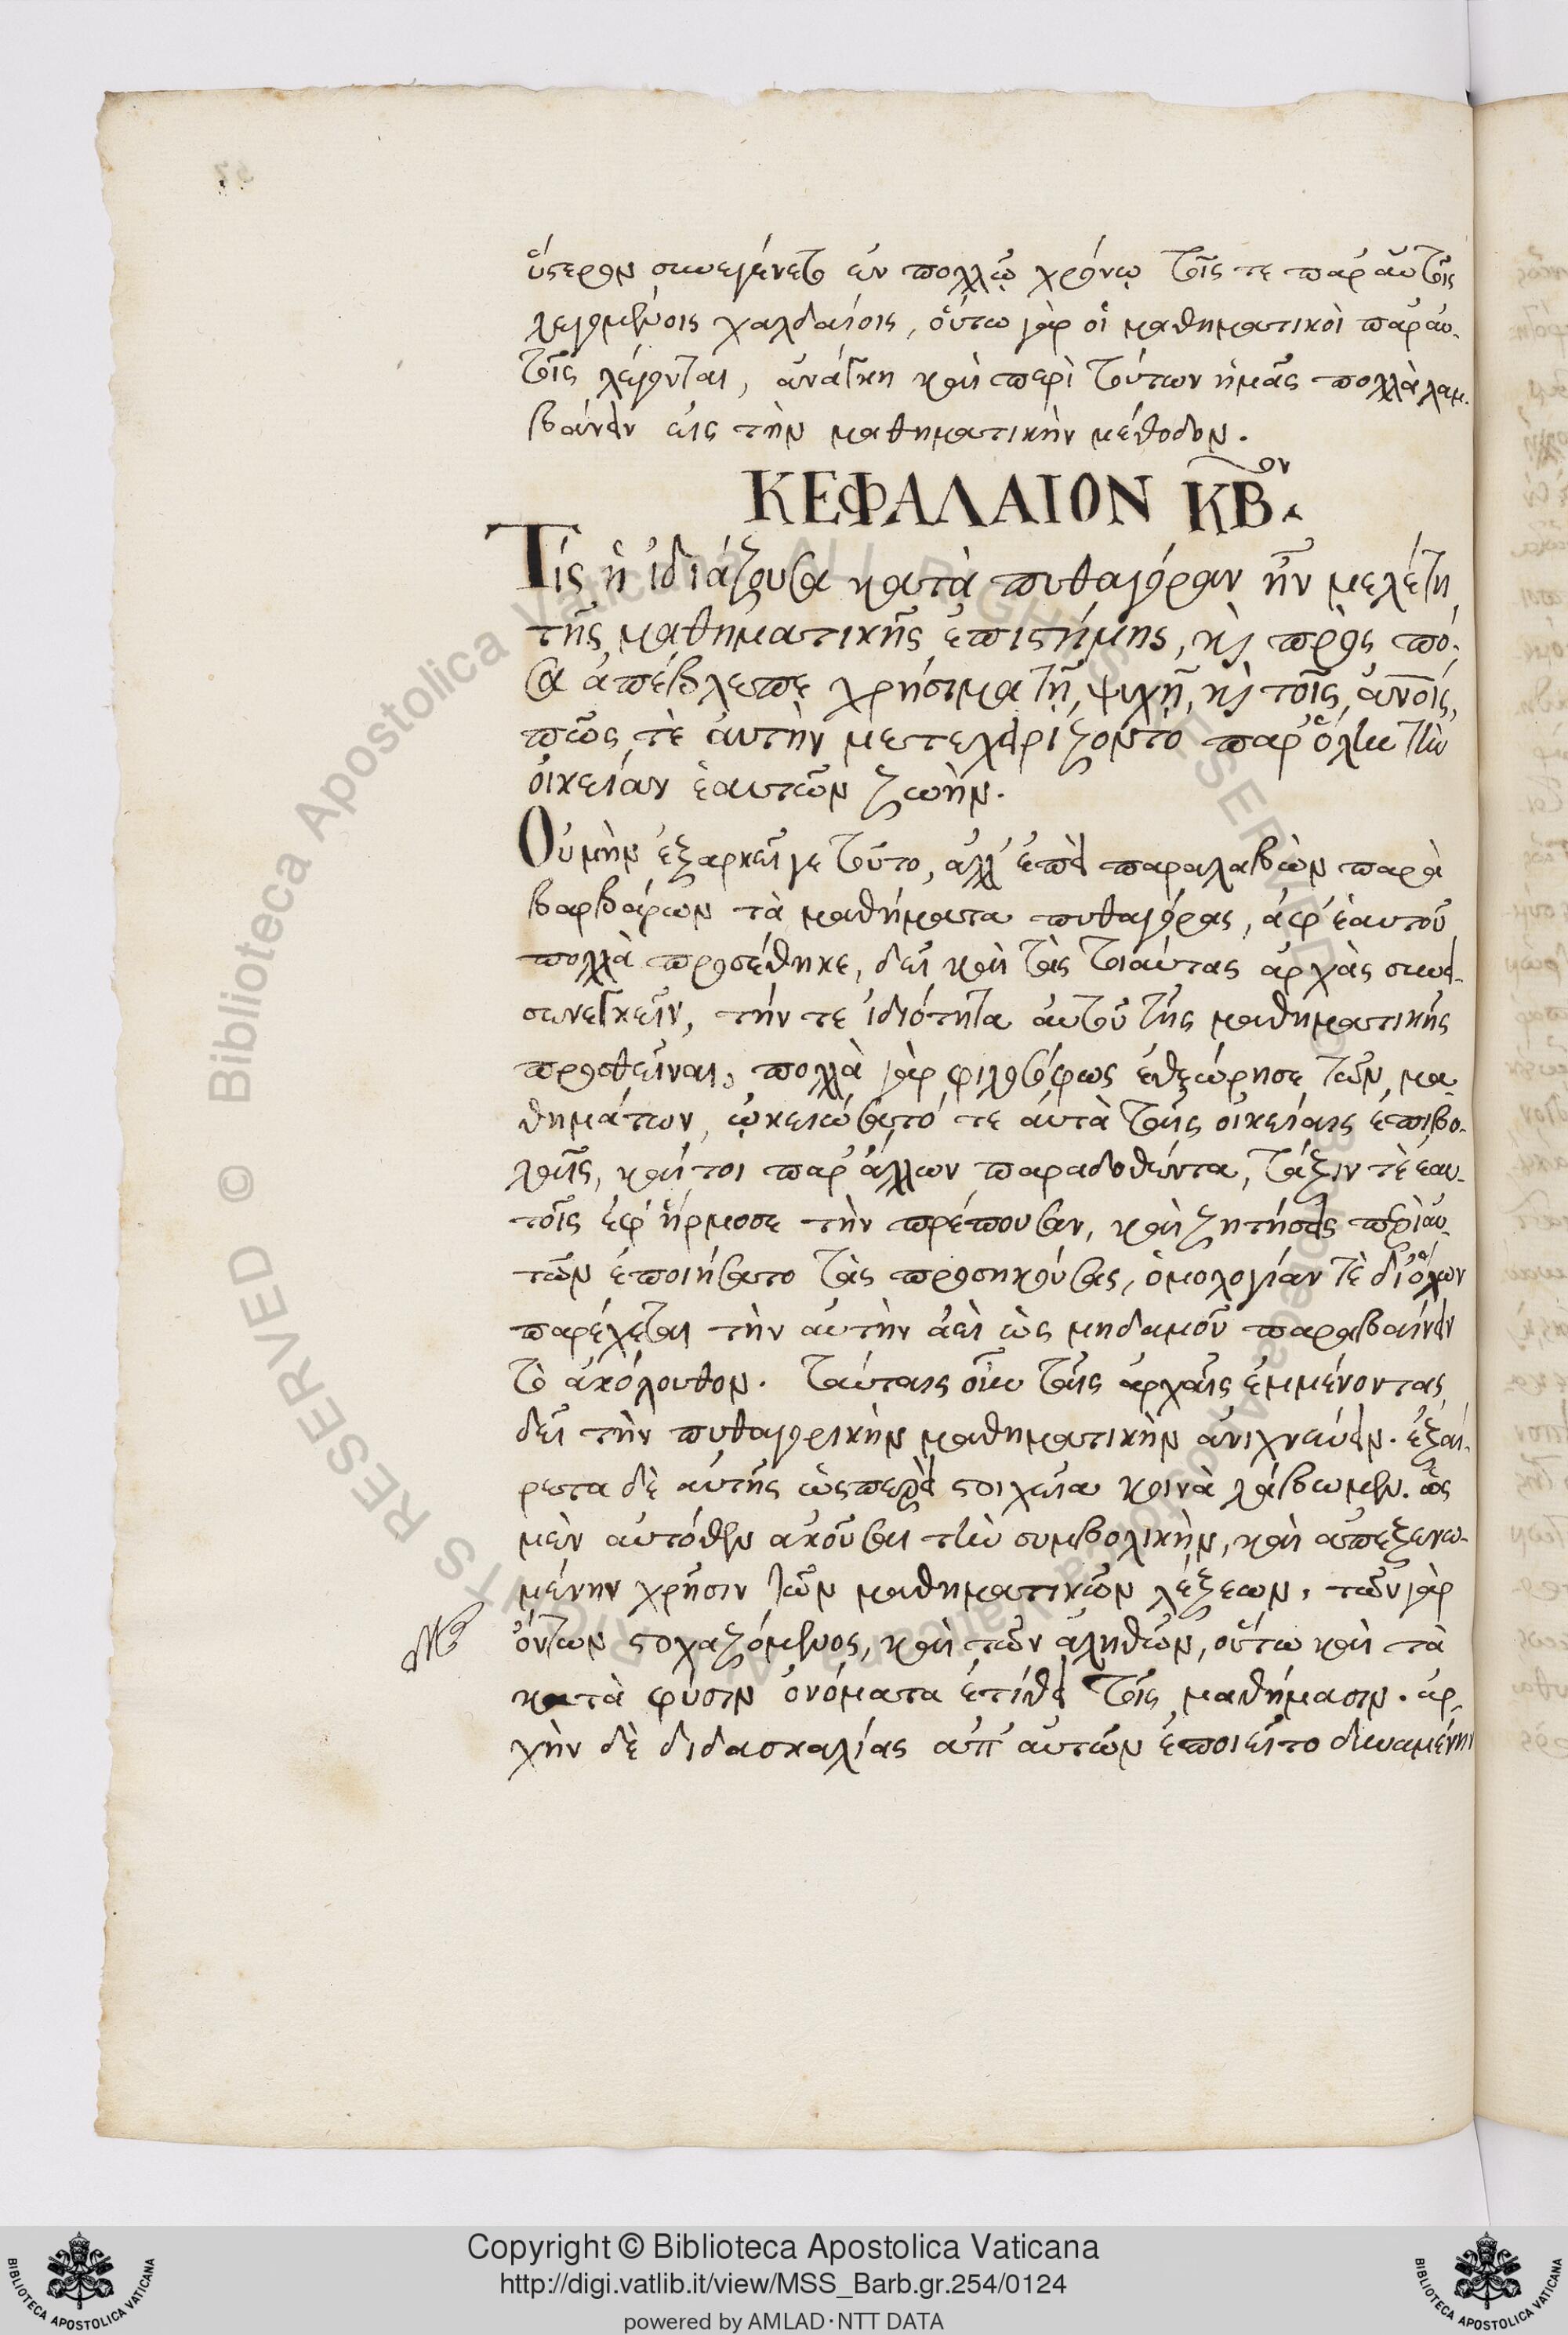 ὕστερον συνεγένετο ἐν πολλῷ χρόνῳ τοῖς τε παρ' αὐτοῖς
λεγομένοις χαλδαίοις, οὕτω γὰρ οἱ μαθηματικοὶ παρ' αυ-
τοῖς λέγονται, ἀνάγκη καὶ περὶ τούτων ἡμᾶς πολλὰ λαμ-
βάνειν εἰς τὴν μαθηματικὴν μέθοδον.
ΚΕΦΑΛΑΙΟΝ ΚΒον.
Τίς ἡ ἰδιάζουσα κατὰ πυθαγόραν ἦν μελέτη
τῆς μαθηματικῆς ἐπιστήμης, κὶ πρὸς πό-
σα ἀπέβλεπε χρήσιμα τῇ ψυχῇ, κὶ τοῖς ἀνοις,
πῶς τὲ ἀυτὴν μετεχειρίζοντο παρ' ὅλην τὴν
οἰκείαν ἑαυτῶν ζωήν.
Οὐ μὴν ἐξαρκεῖ γε τοῦτο, ἀλλ' ἐπεὶ παραλαβὼν παρὰ
βαρβάρων τὰ μαθήματα πυθαγόρας, ἀφ' ἑαυτοῦ
πολλὰ προσέθηκε, δεῖ καὶ τὰς τοιαύτας ἀρχὰς συνει-
συνεγκεῖν, τήν τε ἰδιότητα ἀυτοῦ τῆς μαθηματικῆς
προσθεῖναι, πολλὰ γὰρ φιλοσόφως ἐθεώρησε τῶν μα-
θημάτων, ᾠκειώσατό τε ἀυτὰ ταῖς οἰκείαις ἐπιβο-
λαῖς, καί τοι παρ' ἄλλων παραδοθέντα, τάξιν τὲ ἑαυ-
τοῖς ἐφ' ἥρμοσε τὴν πρέπουσαν, καὶ ζητήσεις περὶ αυ-
τῶν ἐποιήσατο τὰς προσηκούσας, ὁμολογίαν τὲ δι' ὅλων
παρέχεται τὴν αὐτὴν ἀεὶ ὡς μηδαμοῦ παραβαίνειν
τὸ ἀκόλουθον. ταύταις οὖν ταῖς ἀρχαῖς ἐμμένοντας
δεῖ τὴν πυθαγορικὴν μαθηματικὴν ἀνιχνεύειν. ἐξαί-
ρετα δὲ αὐτῆς ὡς περεὶ στοιχεῖα κοινὰ λάβωμεν. ὡς
μὲν αὐτόθεν ἀκοῦσαι τὴν συμβολικὴν, καὶ ἀπεξενω-
μένην χρῆσιν τῶν μαθηματικῶν λέξεων, τῶν γὰρ
ὄντων στοχαζόμενος, καὶ τῶν ἀληθῶν, οὕτω καὶ τὰ
κατὰ φύσιν ὀνόματα ἐτίθει τοῖς μαθήμασιν. ἀρ-
χὴν δὲ διδασκαλίας ἀπ' αὐτῶν ἐποιεῖτο δυναμένην
Biblioteca Apostolica Vaticana ALL RIGHTS RESERVED ©
Copyright © Biblioteca Apostolica Vaticana
http://digi.vatlib.it/view/MSS_Barb.gr.254/0124
powered by AMLAD·NTT DATA
BIBLIOTECA APOSTOLICA VATICANA
BIBLIOTECA APOSTOLICA VATICANA